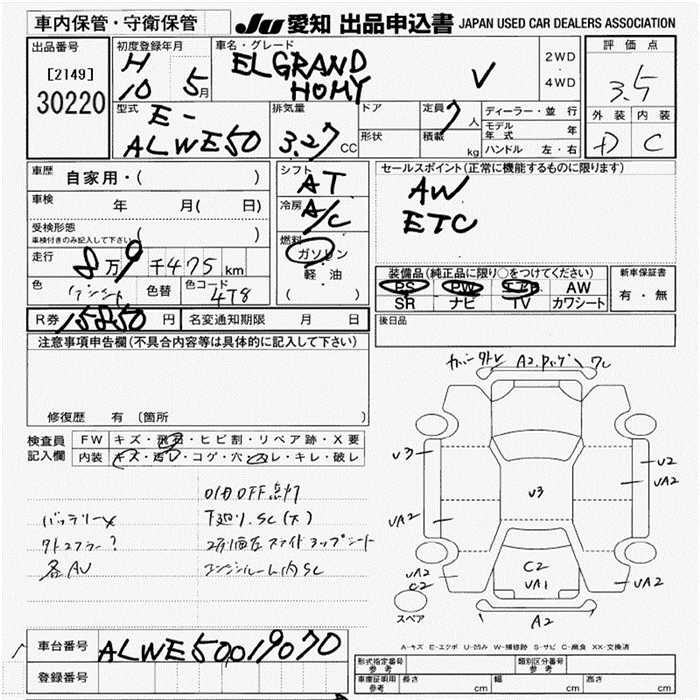 車内保管・守衛保管
JU 愛知 出品申込書 JAPAN USED CAR DEALERS ASSOCIATION
出品番号
[2149]
30220
初度登録年月
H
10 5月
車名・グレード
ELGRAND
HOMY V
2WD
・
4WD
評価点
3.5
外装 内装
D C
型式
E-
ALWE50
排気量
3.27 CC
ドア
形状
定員
7人
積載
kg
ディーラー・並行
モデル年式 年
ハンドル 左・右
車歴 自家用・( )
車検 年 月( 日)
受検形態
車検付きのみ記入して下さい ( )
走行 8万9千475km
色 色替 色コード 4T8
シフト
AT
冷房
A/C
燃料
ガソリン
・
軽・油
( )
セールスポイント(正常に機能するものに限ります)
AW
ETC
装備品(純正品に限り○をつけてください)
PS PW エアB AW
SR ナビ TV カワシート
新車保証書
有・無
R券 15850円 名変通知期限 月 日
後日品
注意事項申告欄(不具合内容等は具体的に記入して下さい)
修復歴 有 (箇所 )
検査員
記入欄
FW キズ・飛石・ヒビ割・リペア跡・X要
内装 キズ・汚レ・コゲ・穴・スレ・キレ・破レ
O/D OFF点灯
バッテリー× 下廻り.SC(大)
各AU エンジンルーム内SC
カバー A2
U3
UA2
U3
U2
UA2
UA2
C2
C2
UA1
UA2
A2
スペア
A-キズ E-エクボ U-凹み W-補修跡 S-サビ C-腐食 XX-交換済
車台番号 ALWE50019070
登録番号
形式指定番号
参考
類別区分番号
参考
車庫証明用
参考
長さ cm 幅 cm 高さ cm